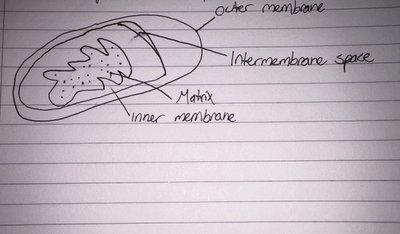 Outer membrane
Intermembrane space
Matrix
Inner membrane